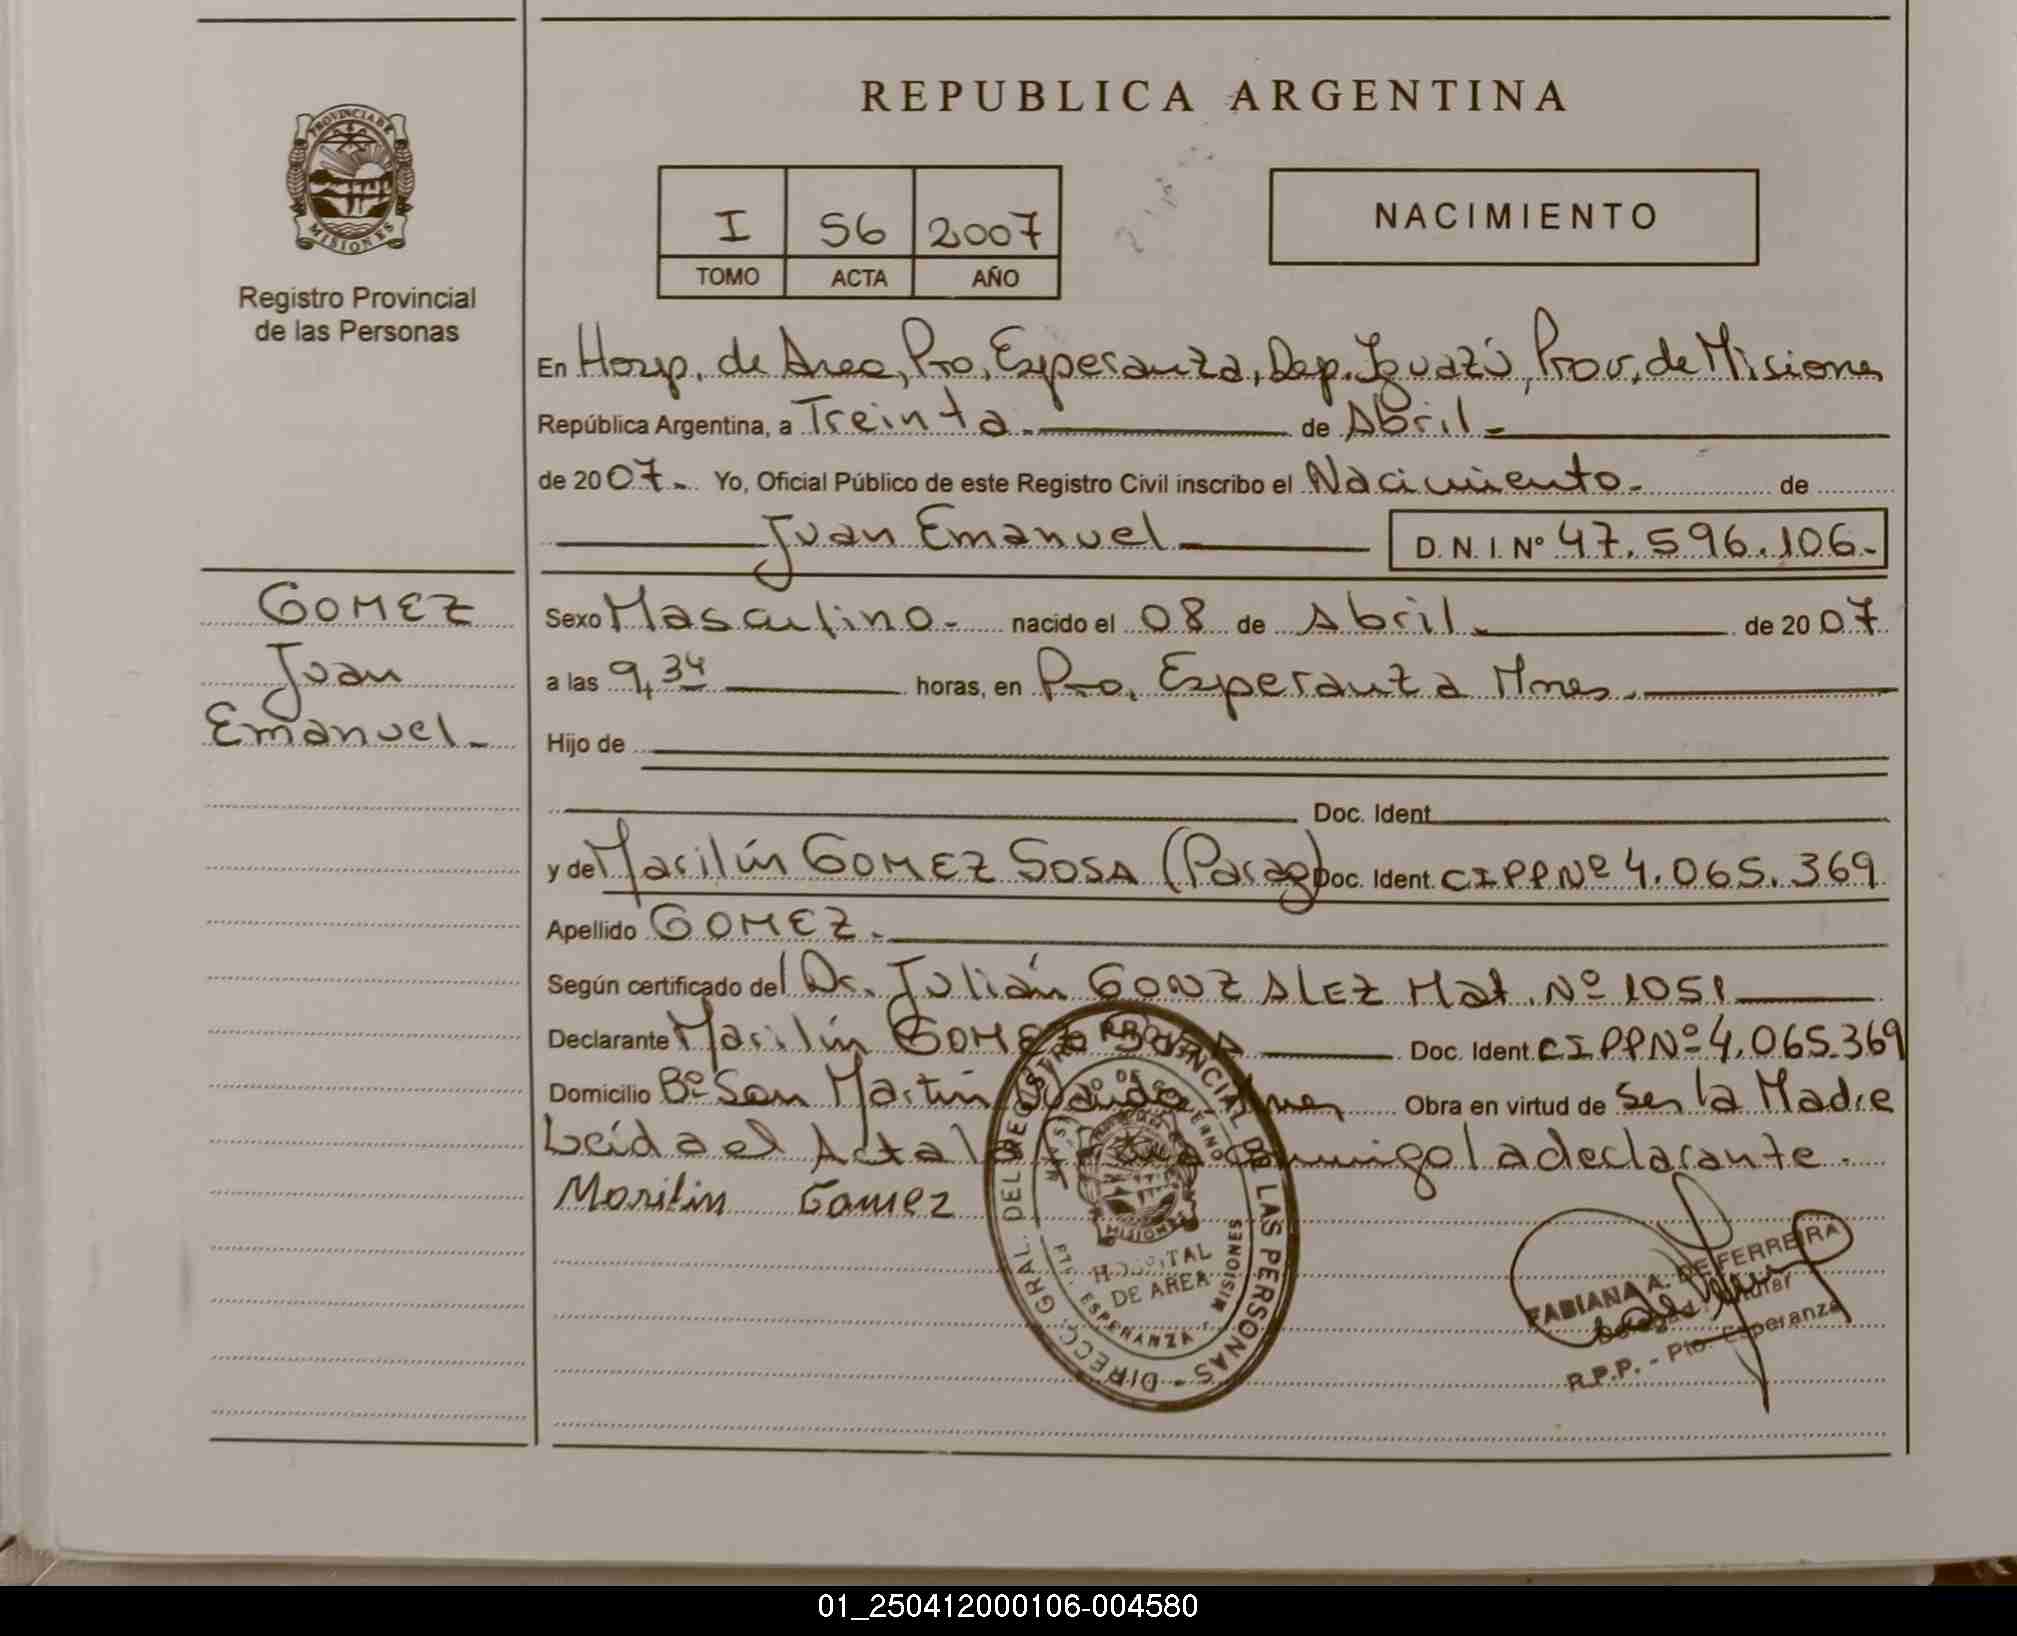 REPUBLICA ARGENTINA
PROVINCIA DE
MISIONES
Registro Provincial
de las Personas
I 56 2007
TOMO ACTA AÑO
NACIMIENTO
En Hosp. de Area, Pto. Esperanza, Dep. Iguazú, Prov. de Misiones
República Argentina, a Treinta.- de Abril.-
de 2007.- Yo, Oficial Público de este Registro Civil inscribo el Nacimiento.- de
Juan Emanuel D.N.I. Nº 47.596.106.-
GOMEZ
Juan
Emanuel.-
Sexo Masculino.- nacido el 08 de Abril.- de 2007
a las 9,34 horas, en Pto. Esperanza Mnes.
Hijo de
Doc. Ident.
y de Marilín GOMEZ SOSA (Parag) Doc. Ident. CIPPNº 4.065.369
Apellido GOMEZ.-
Según certificado del Dr. Julián GONZALEZ Mat. Nº 1051
Declarante Marilín GOMEZ SOSA Doc. Ident. CIPPNº 4.065.369
Domicilio Bº San Martín Wanda Mnes Obra en virtud de Ser la Madre
Leída el Acta la firma conmigo la declarante.
Marilin Gomez
DIRECC. GRAL. DEL REGISTRO PROVINCIAL DE LAS PERSONAS
MISIONES
HOSPITAL
DE AREA
ESPERANZA MISIONES
FABIANA A. DE FERREIRA
R.P.P. - Pto. Esperanza
01_250412000106-004580